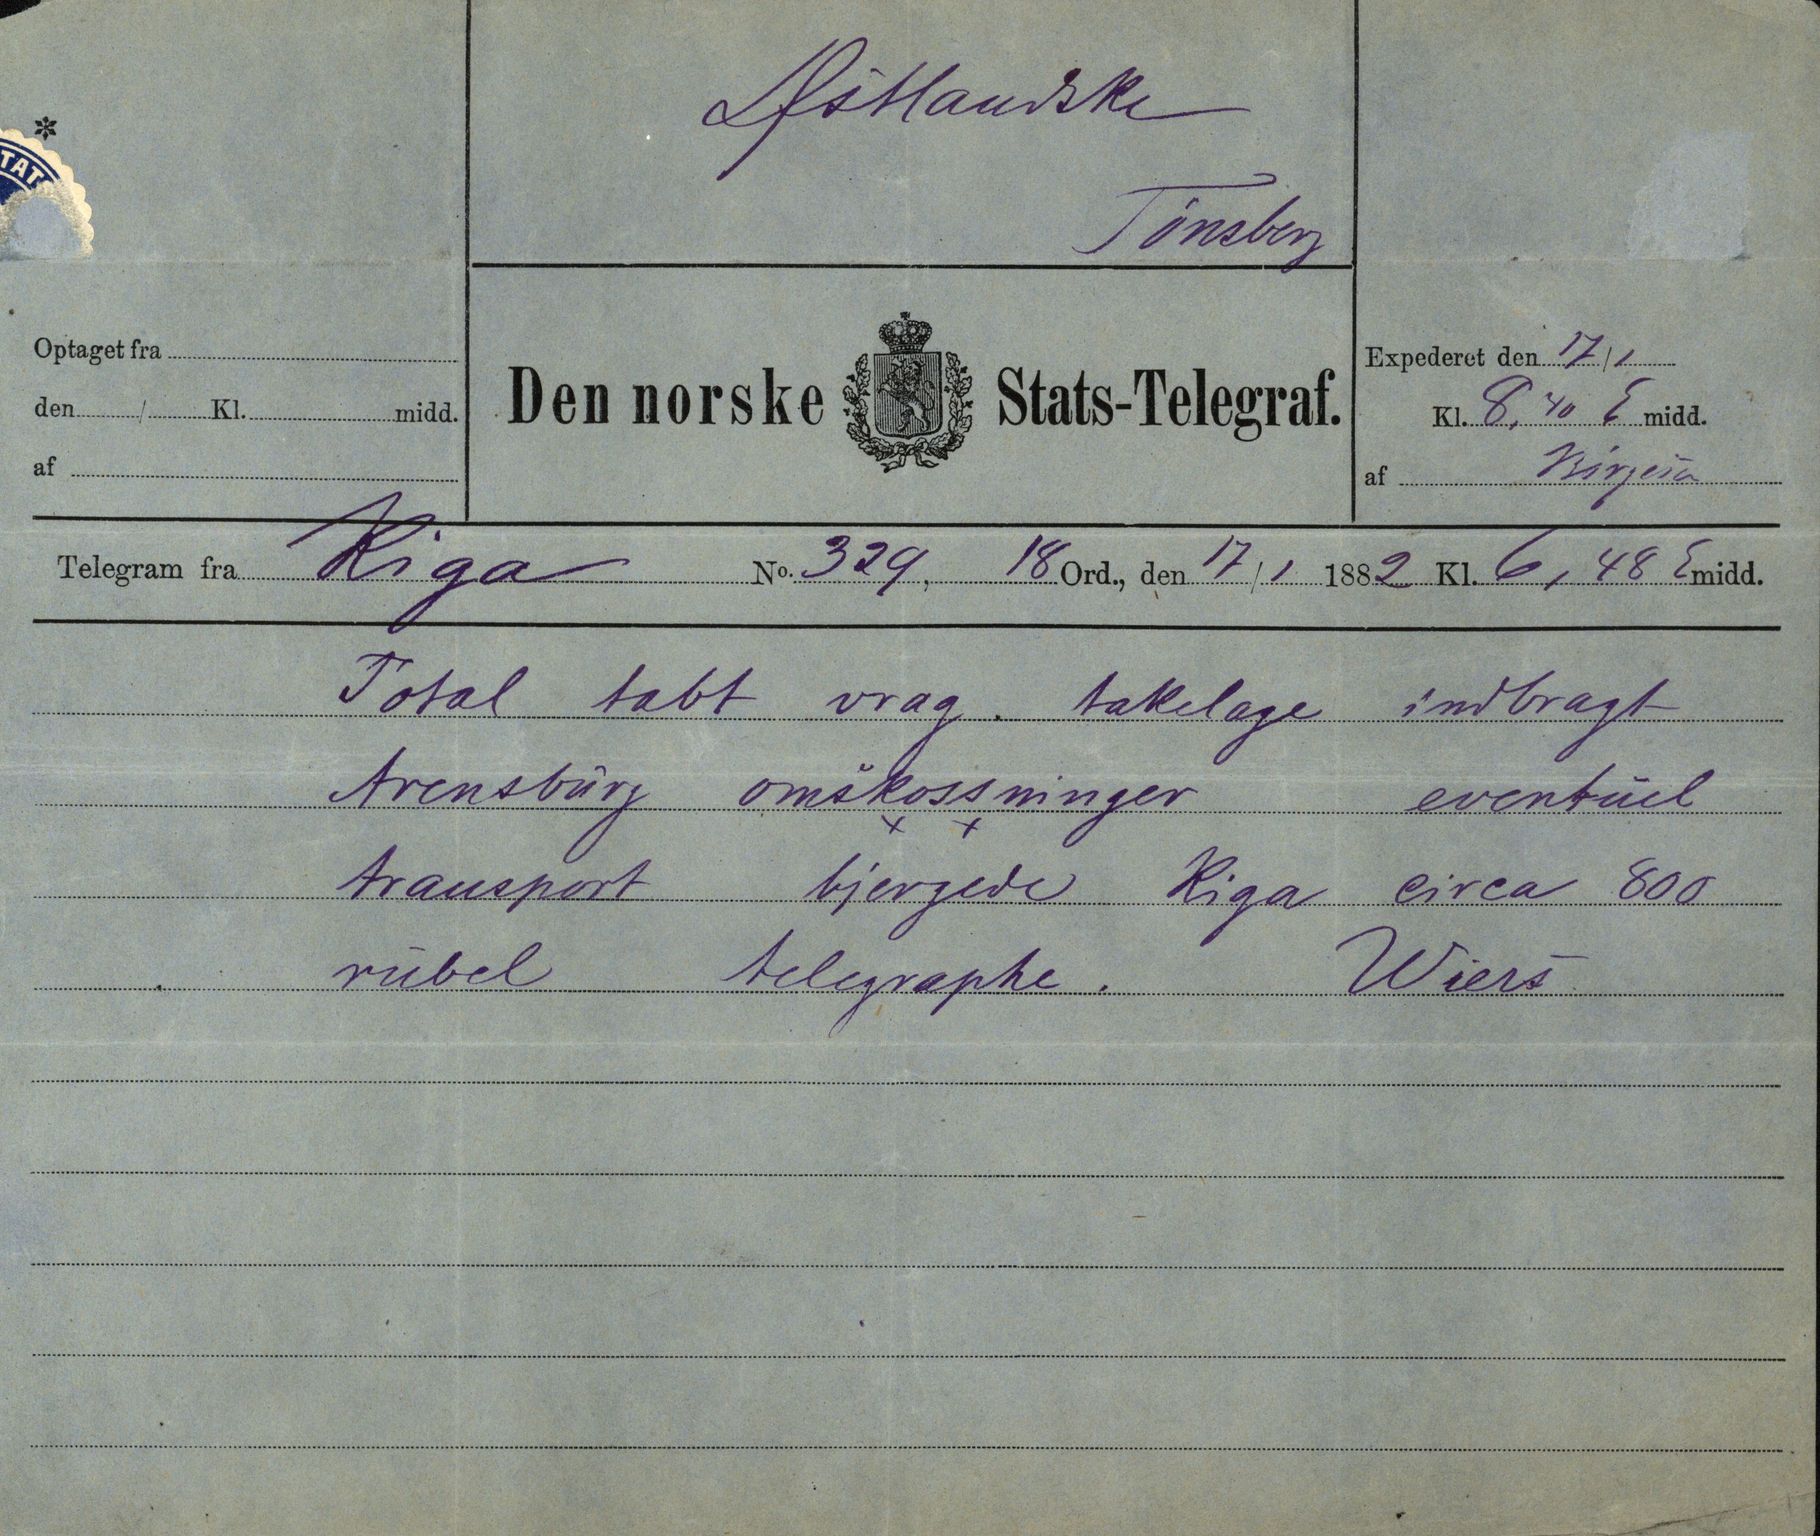 Østlandske
Tönsberg
*
TAT
Optaget fra
den / Kl. midd.
af
Den norske Stats-Telegraf.
Expederet den 17/1
Kl. 8,40 E midd.
af
Telegram fra Riga No. 329, 18 Ord., den 17/1 1882 Kl. 6,48 E midd.
Total tabt vrag. takelage indbragt
Arensbürg omskossninger eventüel
x x
transport bjergede Riga circa 800
rübel telegraphe. Wiers